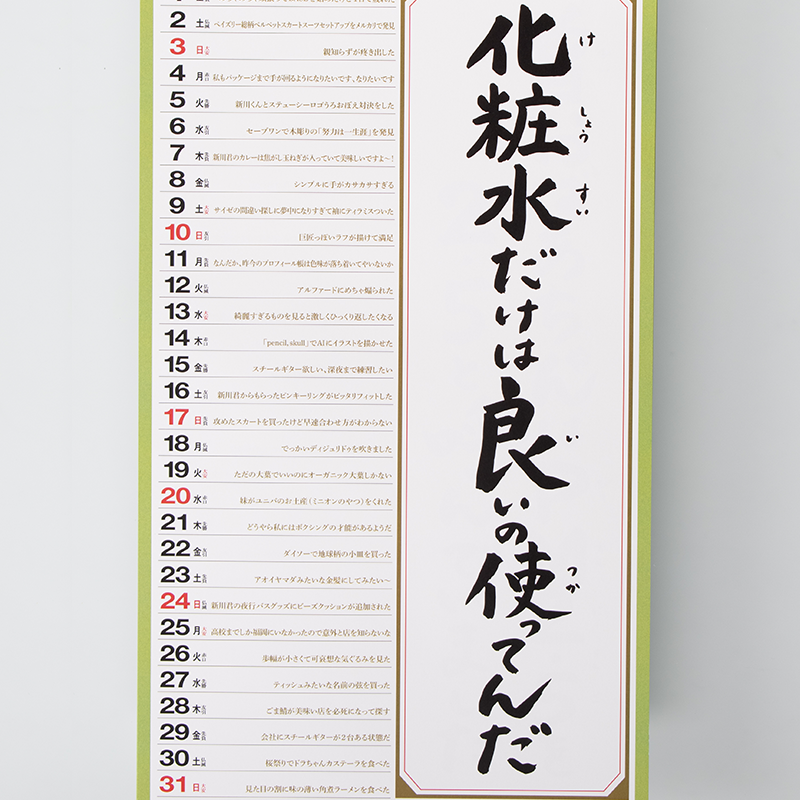 2 土 仏滅 ペイズリー総柄ベルベットスカートスーツセットアップをメルカリで発見
3 日 大安 親知らずが疼き出した
4 月 赤口 私もパッケージまで手が回るようになりたいです、なりたいです
5 火 先勝 新川くんとステューシーロゴうろおぼえ対決をした
6 水 友引 セーブワンで木彫りの「努力は一生涯」を発見
7 木 先負 新川君のカレーは焦がし玉ねぎが入っていて美味しいですよ〜!
8 金 仏滅 シンプルに手がカサカサすぎる
9 土 大安 サイゼの間違い探しに夢中になりすぎて袖にティラミスついた
10 日 友引 巨匠っぽいラフが描けて満足
11 月 先負 なんだか、昨今のプロフィール帳は色味が落ち着いてやいないか
12 火 仏滅 アルファードにめちゃ煽られた
13 水 大安 綺麗すぎるものを見ると激しくひっくり返したくなる
14 木 赤口 「pencil,skull」でAIにイラストを描かせた
15 金 先勝 スチールギター欲しい、深夜まで練習したい
16 土 友引 新川君からもらったピンキーリングがピッタリフィットした
17 日 先負 攻めたスカートを買ったけど早速合わせ方がわからない
18 月 仏滅 でっかいディジュリドゥを吹きました
19 火 大安 ただの大葉でいいのにオーガニック大葉しかない
20 水 赤口 妹がユニバのお土産(ミニオンのやつ)をくれた
21 木 先勝 どうやら私にはボクシングの才能があるようだ
22 金 友引 ダイソーで地球柄の小皿を買った
23 土 先負 アオイヤマダみたいな金髪にしてみたい〜
24 日 仏滅 新川君の夜行バスグッズにビーズクッションが追加された
25 月 大安 高校までしか福岡にいなかったので意外と店を知らないな
26 火 赤口 歩幅が小さくて可哀想な気ぐるみを見た
27 水 先勝 ティッシュみたいな名前の弦を買った
28 木 友引 ごま鯖が美味い店を必死になって探す
29 金 先負 会社にスチールギターが2台ある状態だ
30 土 仏滅 桜祭りでドラちゃんカステーラを食べた
31 日 大安 見た目の割に味の薄い角煮ラーメンを食べた
化粧水だけは良いの使ってんだ
け しょう すい い つか